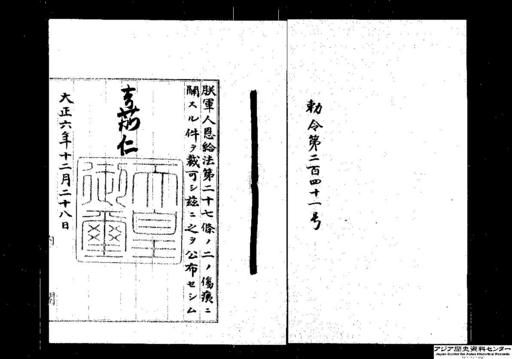 勅令第二百四十一号
朕軍人恩給法第二十七條ノ二ノ傷痍ニ
關スル件ヲ裁可シ玆ニ之ヲ公布セシム
嘉仁
天皇御璽
大正六年十二月二十八日
内閣
アジア歴史資料センター
Japan Center for Asian Historical Records